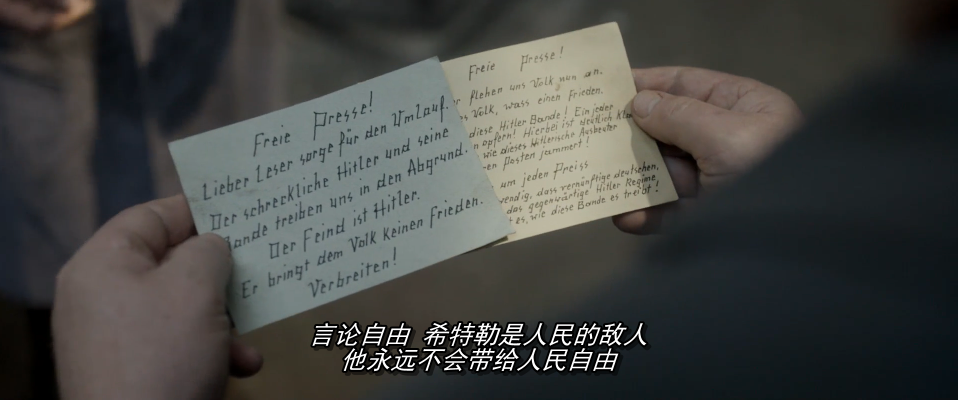 Freie Presse!
Lieber Leser sorge für den Umlauf.
Der schreckliche Hitler und seine
Bande treiben uns in den Abgrund.
Der Feind ist Hitler.
Er bringt dem Volk keinen Frieden.
Verbreiten!
Freie Presse!
flehen uns Volk nun an.
Volk, wass einen Frieden.
diese Hitler Bande! Ein jeder
opfern! Hierbei ist deutlich
wie dieses Hitlerische Ausbeuter
Posten jammert!
um jeden Preiss
dass vernünftige deutschen,
das gegenwärtige Hitler Regime,
es, wie diese Bande es treibt!
言论自由 希特勒是人民的敌人
他永远不会带给人民自由